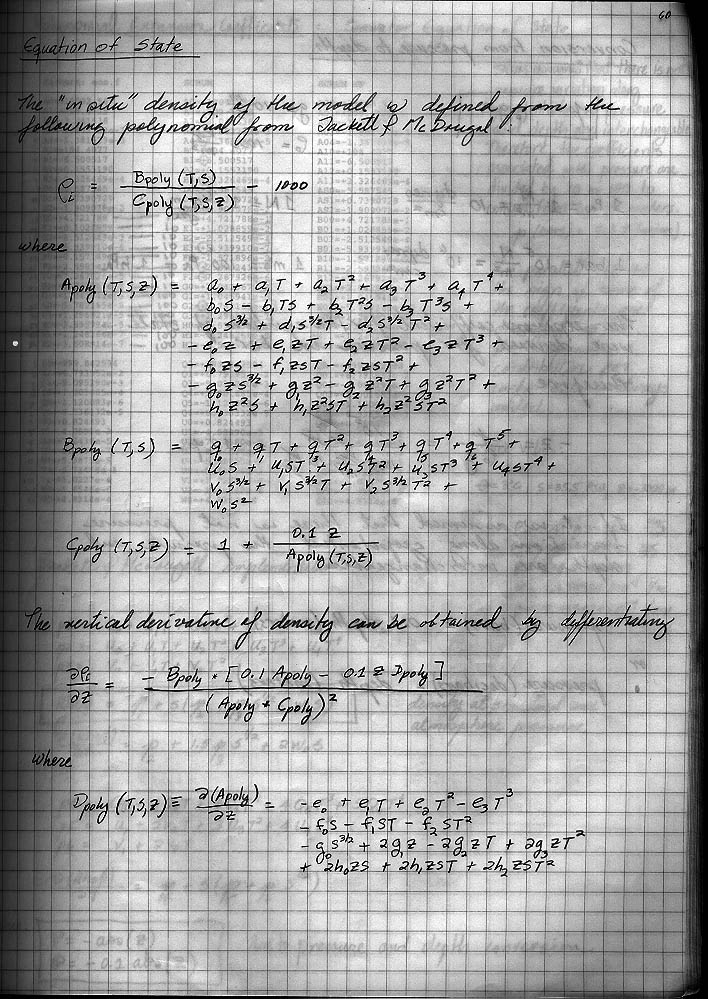 60
Equation of State
The "in situ" density of the model is defined from the
following polynomial from Jackett & McDougal:
ρᵢ = Bpoly (T,S) / Cpoly (T,S,Z) - 1000
where
Apoly (T,S,Z) = a₀ + a₁T + a₂T² + a₃T³ + a₄T⁴ +
b₀S - b₁TS + b₂T²S - b₃T³S +
d₀S^3/2 + d₁S^3/2T - d₂S^3/2T² +
-e₀Z + e₁ZT + e₂ZT² - e₃ZT³ +
-f₀ZS - f₁ZST - f₂ZST² +
-g₀ZS^3/2 + g₁Z² - g₂Z²T + g₃Z²T² +
h₀Z²S + h₁Z²ST + h₂Z²ST²
Bpoly (T,S) = q₀ + q₁T + q₂T² + q₃T³ + q₄T⁴ + q₅T⁵ +
u₀S + u₁ST + u₂ST² + u₃ST³ + u₄ST⁴ +
v₀S^3/2 + v₁S^3/2T + v₂S^3/2T² +
w₀S²
Cpoly (T,S,Z) = 1 + 0.1 Z / Apoly (T,S,Z)
The vertical derivative of density can be obtained by differentiating
∂ρᵢ/∂Z = - Bpoly * [0.1 Apoly - 0.1 Z Dpoly] / (Apoly * Cpoly)²
where
Dpoly (T,S,Z) ≡ ∂(Apoly)/∂Z = -e₀ + e₁T + e₂T² - e₃T³
- f₀S - f₁ST - f₂ST²
- g₀S^3/2 + 2g₁Z - 2g₂ZT + 2g₃ZT²
+ 2h₀ZS + 2h₁ZST + 2h₂ZST²